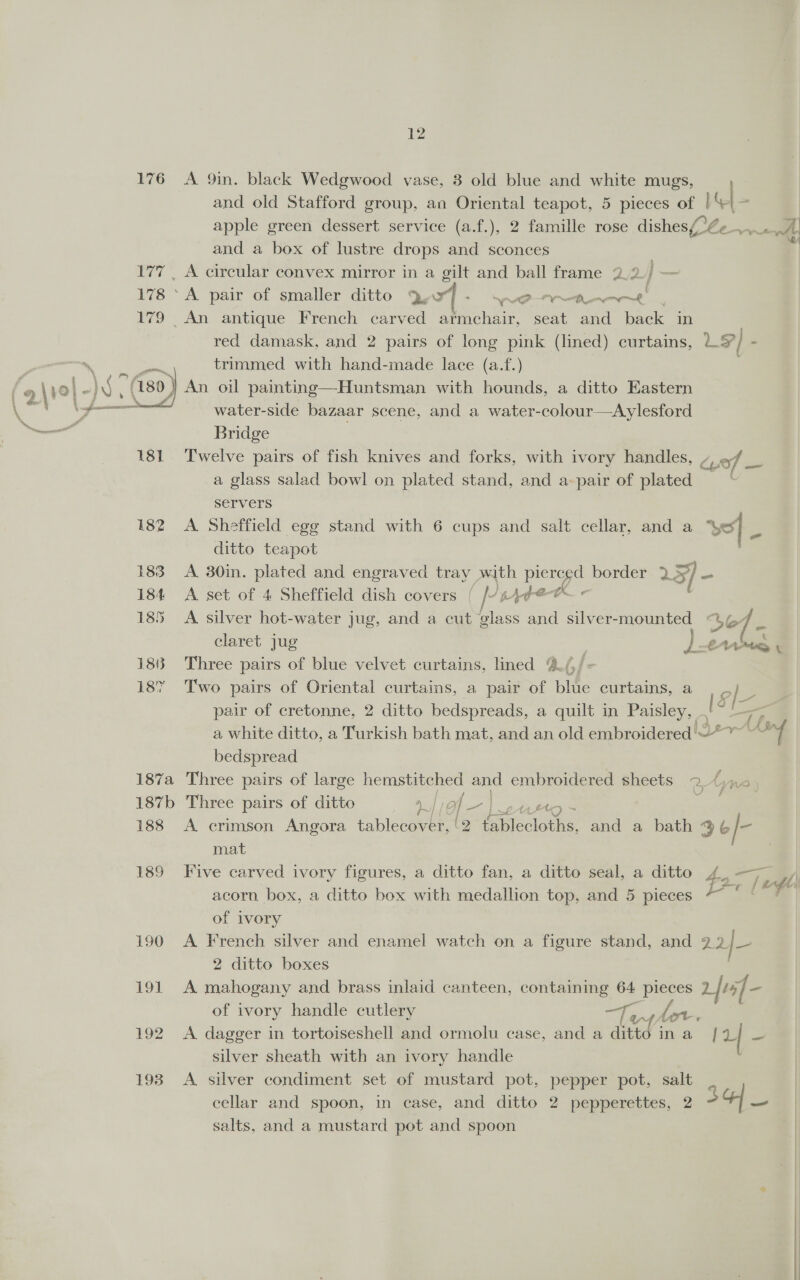 12
176 A 9in. black Wedgwood vase, 3 old blue and white mugs,
and old Stafford group, an Oriental teapot, 5 pieces of
apple green dessert service (a.f.), 2 famille rose dishes,
and a box of lustre drops and sconces
177 A circular convex mirror in a gilt and ball frame 22/—
178 A pair of smaller ditto
179 An antique French carved armchair, seat and back in
red damask, and 2 pairs of long pink (lined) curtains,
trimmed with hand-made lace (a.f.)
180 An oil painting—Huntsman with hounds, a ditto Eastern
water-side bazaar scene, and a water-colour—Aylesford
Bridge
181 Twelve pairs of fish knives and forks, with ivory handles,
a glass salad bowl on plated stand, and a pair of plated
servers
182 A Sheffield egg stand with 6 cups and salt cellar, and a
ditto teapot
183 A 30in. plated and engraved tray with pierced border
184 A set of 4 Sheffield dish covers
185 A silver hot-water jug, and a cut glass and silver-mounted
claret jug
186 Three pairs of blue velvet curtains, lined
187 Two pairs of Oriental curtains, a pair of blue curtains, a
pair of cretonne, 2 ditto bedspreads, a quilt in Paisley,
a white ditto, a Turkish bath mat, and an old embroidered
bedspread
187a Three pairs of large hemstitched and embroidered sheets
187b Three pairs of ditto
188 A crimson Angora tablecover, 2 tablecloths, and a bath 36/-
mat
189 Five carved ivory figures, a ditto fan, a ditto seal, a ditto
acorn box, a ditto box with medallion top, and 5 pieces
of ivory
190 A French silver and enamel watch on a figure stand, and 22/—
2 ditto boxes
191 A mahogany and brass inlaid canteen, containing 64 pieces
of ivory handle cutlery Taylor.
192 A dagger in tortoiseshell and ormolu case, and a ditto in a
silver sheath with an ivory handle
193 A silver condiment set of mustard pot, pepper pot, salt
cellar and spoon, in case, and ditto 2 pepperettes, 2
salts, and a mustard pot and spoon